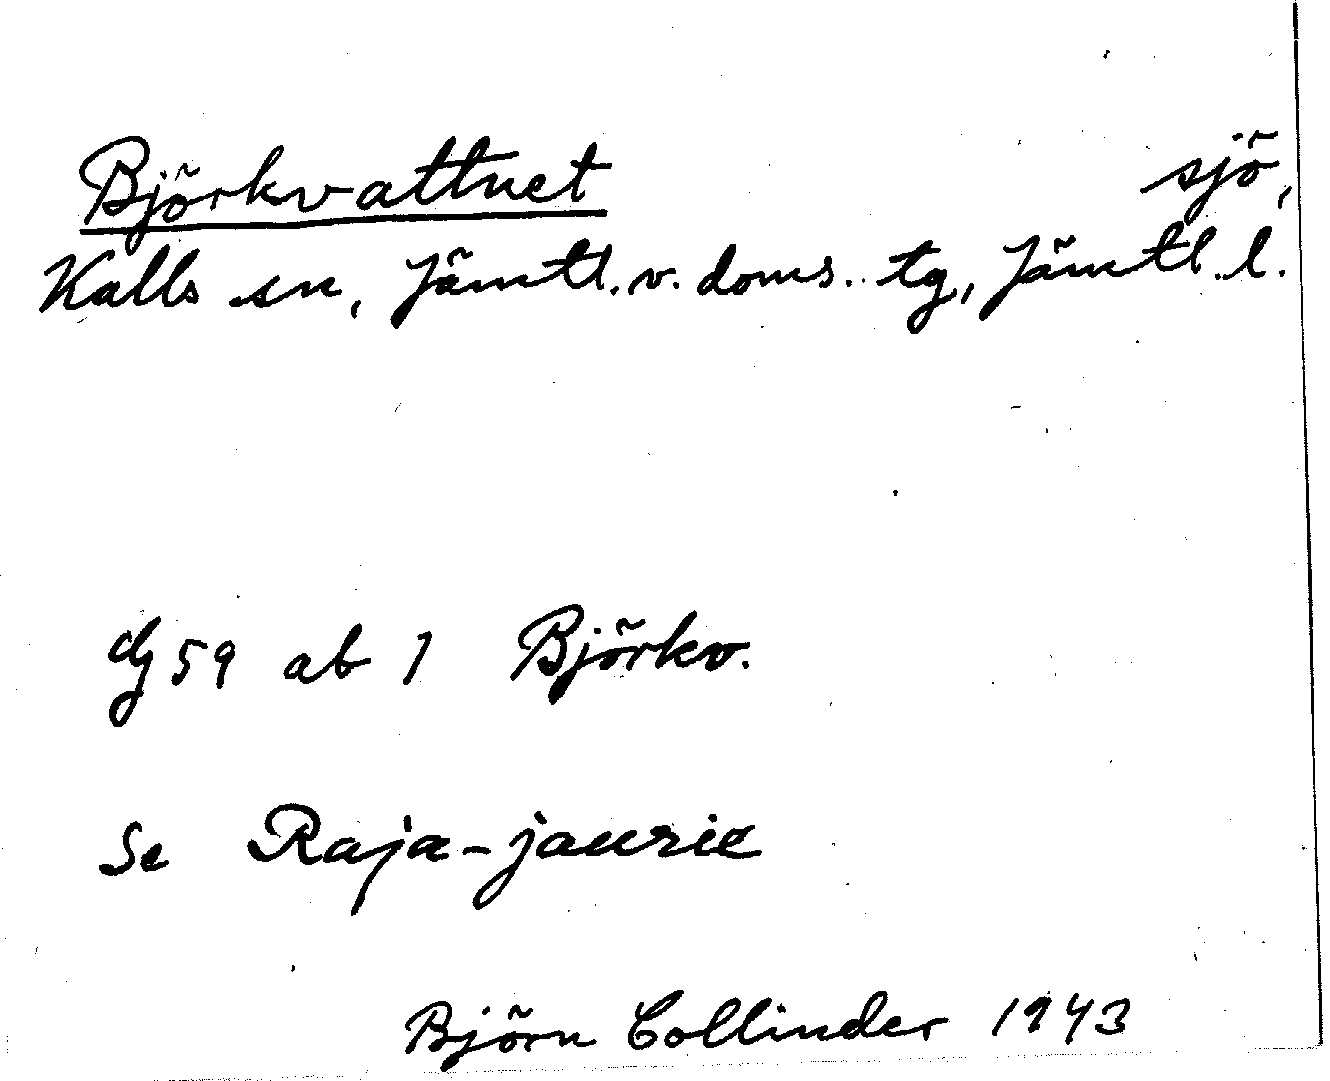 Björkvattnet sjö,
Kalls sn, Jämtl. v. doms. tg, Jämtl. l.
dg 59 ab 1 Björkv.
Se Raja-jaurie
Björn Collinder 1943